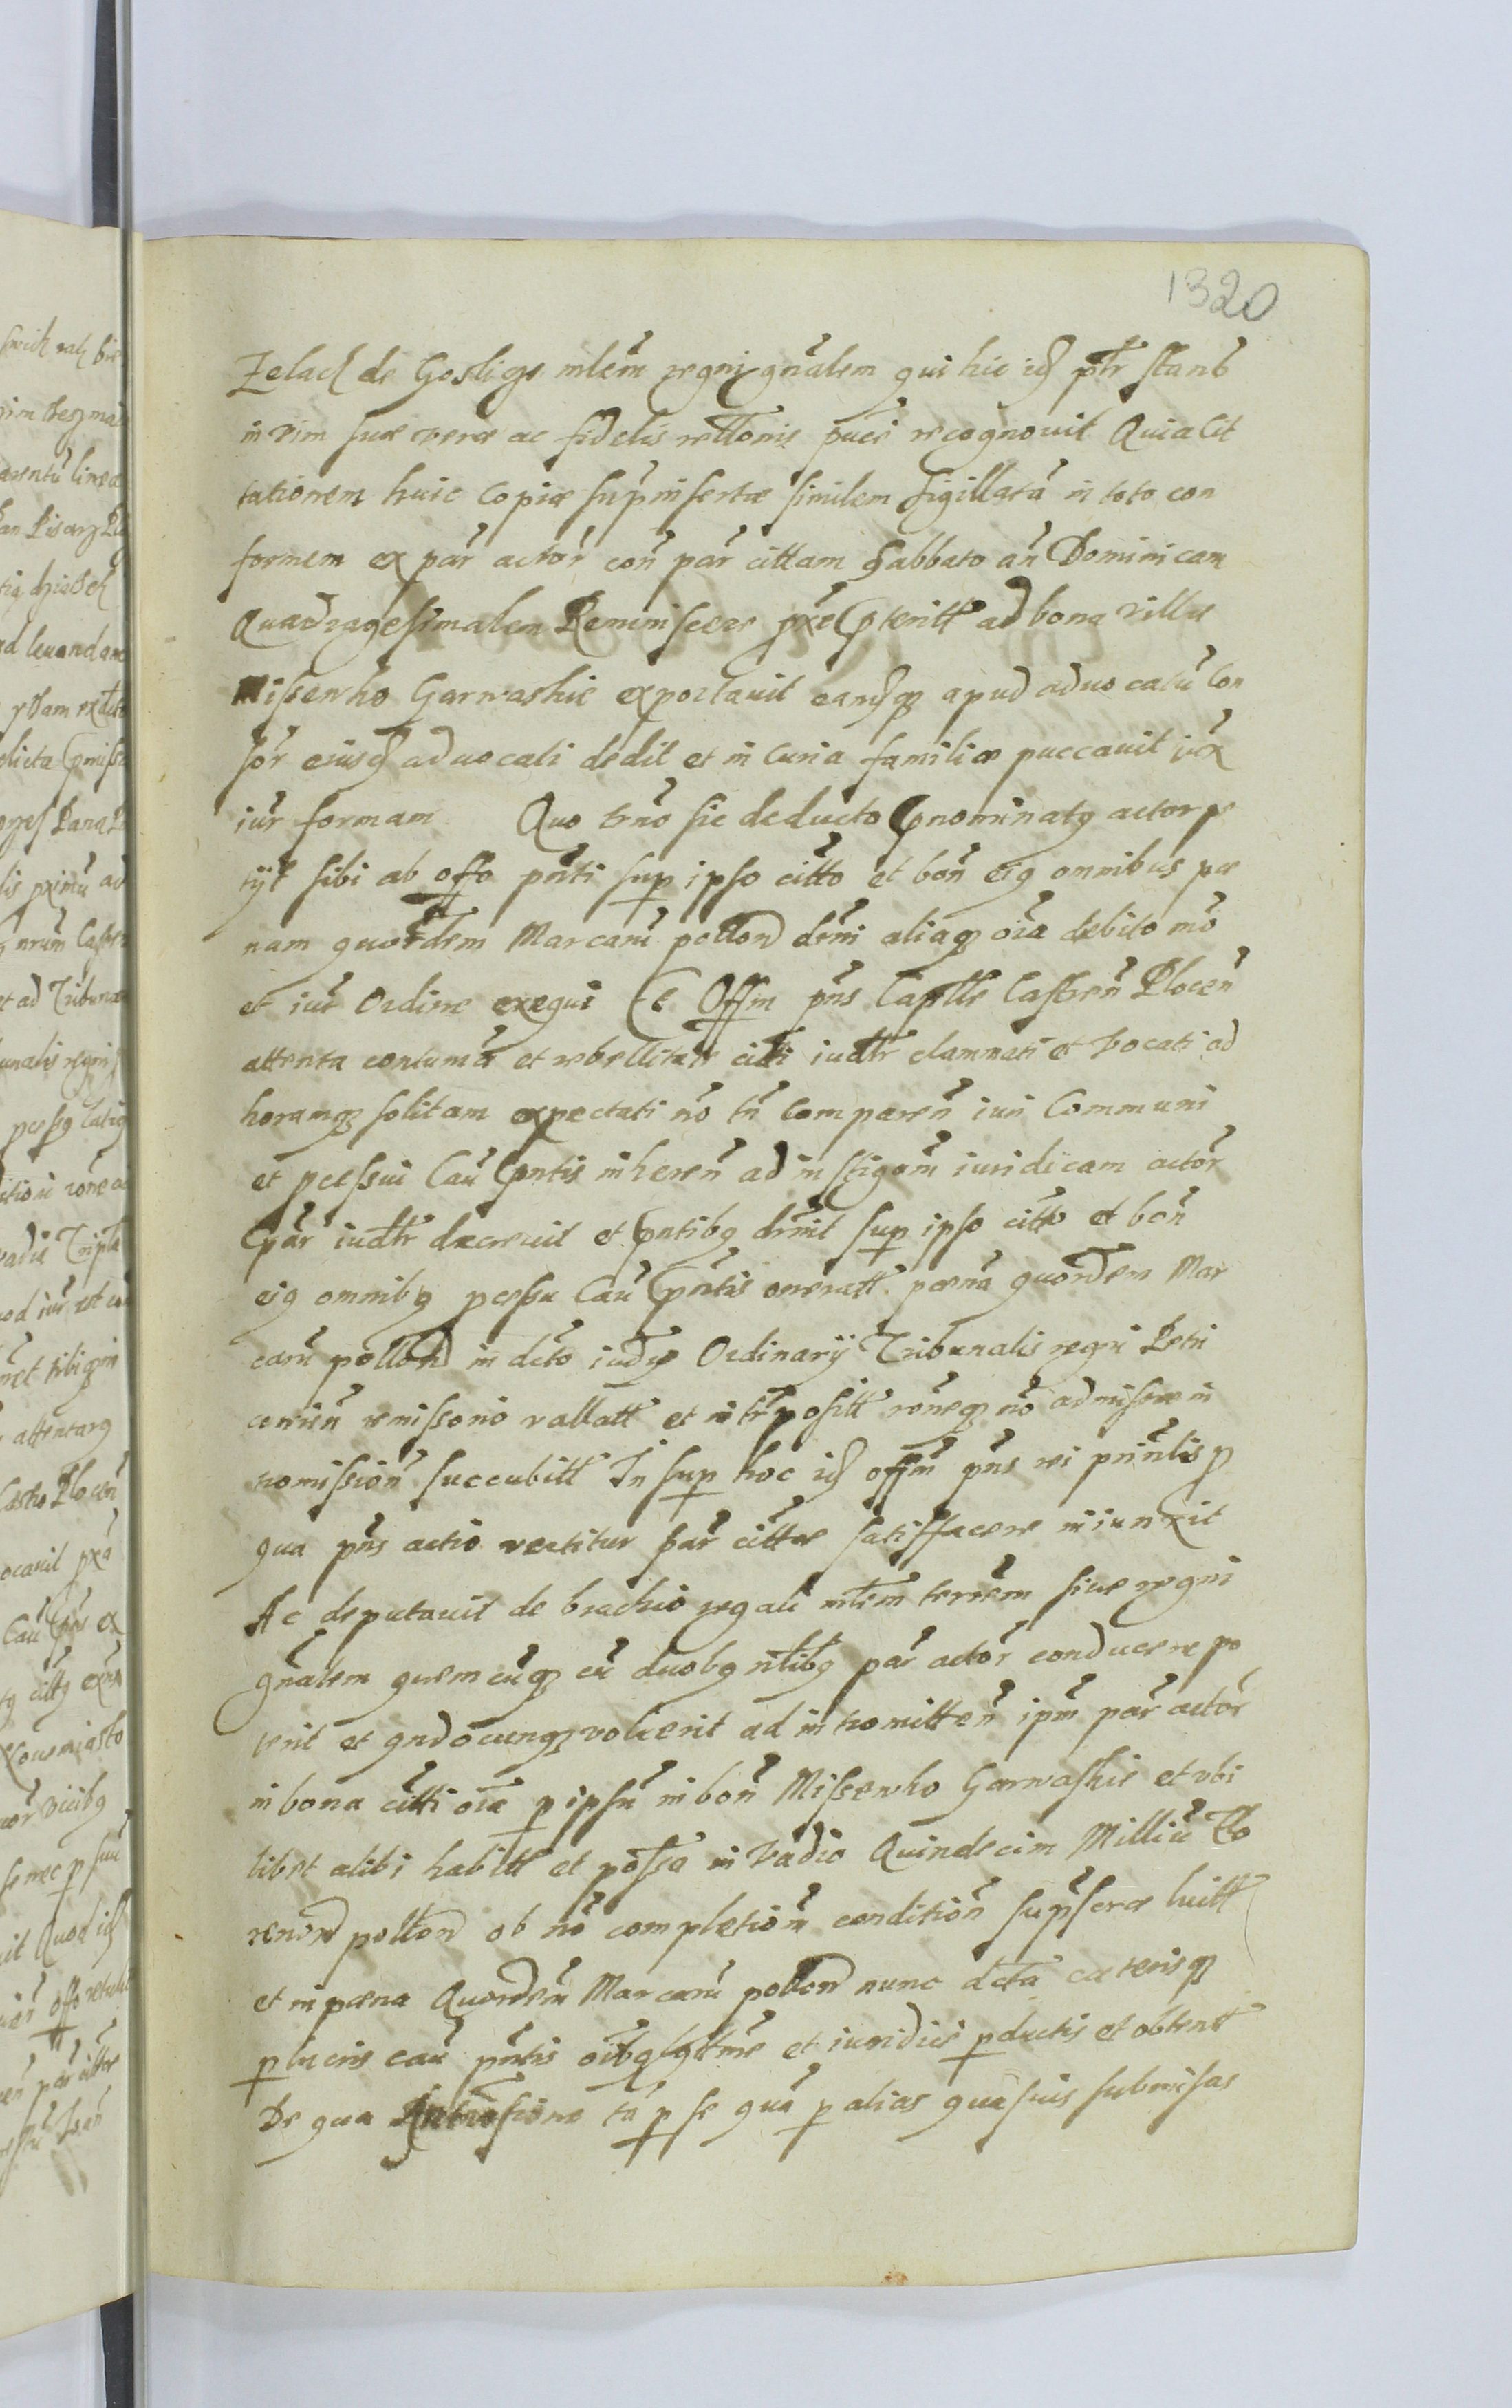 1320
Zelach de Goslige mlem regni gnalem qui hic id ptr stans
in vim suæ veræ ac fidelis rellonis puce recognovit Quia Cit
tationem huic Copiæ supinsertæ similem sigillatã in toto con
formem ex par actor con par cittam Sabbato an Dominicam
Quadragesimalem Reminiscere præteritt ad bona villæ
Missewko Garwaskie exportavit eamqз apud advocatũ Con
sor eiusd advocati dedit et in Curia familiæ puccavit iux
iur formam Quo trno sic deducto pnominatq actor pe
tyt sibi ab offo pnti sup ipso citto et bon eiq omnibus pæ
nam quordem Marcarũ pollon drni aliaqз oia debito mo
et iur Ordine exequi Et Offm pns Caplle Castren Plocen
attenta contuma et rebellitate citti iudtr clamati et vocati ad
horamqз solitam expectati no tn Comparen iuri Communi
et pcessui Cau pntis inheren ad instigam iuridicam actor
par iudtr decrevit et pntibq drnit sup ipso citto et bon
eiq omnibq pcessu Cau pntis oneratt pæna quordem Mar
carũ pollon in dcto iudo Ordinarij Tribunalis regni Petri
covien remissorio vallatt et interpositt roneqз no admissæ in
romission succubitt In sup hoc id offm pns rei prinlis p
qua pns actio vertitur par cittæ satisfacere iniunxit
Ac deputavit de brachio regali mlem terrem sive regni
gnalem quemcuqз cũ duobq nlibq par actor conducere po
terit et qndocunqз voluerit ad intromitten ipm par actor
in bona citti oia p ipsũ in bon Missewko Garwaskie et vbi
libet alibi habitt et possa in vadio Quindecim Milliũ Flo
renor pollon ob no completion condition supscræ luitt
et in pæna Quordem Marcarũ pollon nunc dcta cæterisqз
p lucris cau pntis oibq lgtme et iuridice pductis et obtent
De qua Intrōssione tã p se quã p alias quasvis submissas